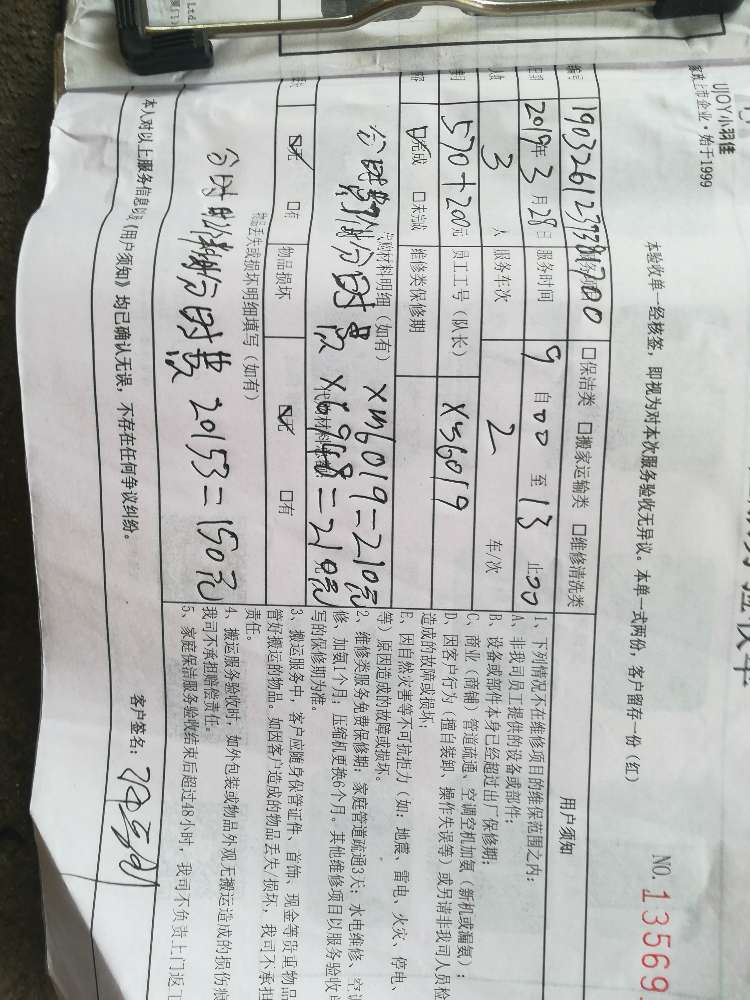 Ltd.
UJOY小羽佳
家政上市企业·始于1999
NO.13569
本验收单一经核签，即视为对本次服务验收无异议。本单一式两份，客户留存一份（红）
□保洁类 □搬家运输类 □维修清洗类
2019年3月28日 服务时间 9 自00 至 13 止00
3 人 服务车次 2 车/次
570+200元 员工工号（队长） XM6019
☑完成 □未完成 维修类保修期
代购材料明细（如有） XM6019=210元
X6948=210元
☑无 □有 物品损坏 ☑无 □有
物品丢失或损坏明细填写（如有）
20153=150元
本人对以上服务信息以及《用户须知》均已确认无误，不存在任何争议纠纷。
客户签名：
用户须知
1、下列情况不在维修项目的维保范围之内：
A、非我司员工提供的设备或部件；
B、设备或部件本身已经超过出厂保修期；
C、商业（商铺）管道疏通、空调空机加氨（新机或漏氨）；
D、因客户行为（擅自装卸、操作失误等）或另请非我司人员检
造成的故障或损坏；
E、因自然灾害等不可抗拒力（如：地震、雷电、火灾、停电、
等）原因造成的故障或损坏。
2、维修类服务免费保修期：家庭管道疏通3天；水电维修、空调
修、加氨1个月；压缩机更换6个月。其他维修项目以服务验收
写的保修期为准。
3、搬运服务中，客户应随身保管证件、首饰、现金等贵重物品
管好搬运的物品。如因客户造成的物品丢失/损坏，我司不承担
责任。
4、搬运服务验收时，如外包装或物品外观无搬运造成的损伤痕
我司不承担赔偿责任。
5、家庭保洁服务验收结束后超过48小时，我司不负责上门返工